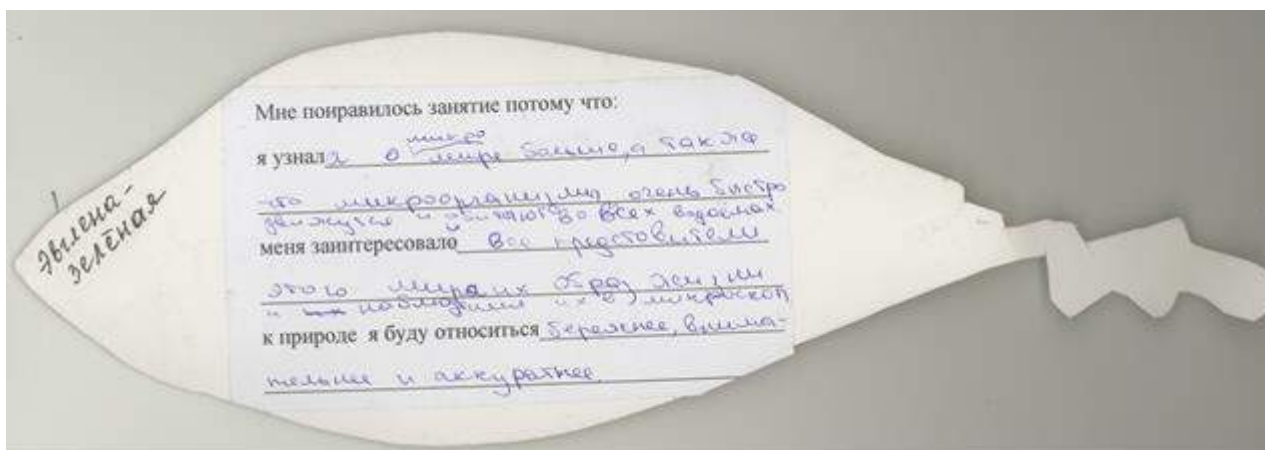 эвглена-
зелёная
Мне понравилось занятие потому что:
микро
я узнал а о мире больше, а также
что микроорганизмы очень быстро
движутся и обитают во всех водоёмах
меня заинтересовало все представители
этого мира их образ жизни
и наблюдения их в микроскоп
к природе я буду относиться бережнее, внима-
тельнее и аккуратнее.